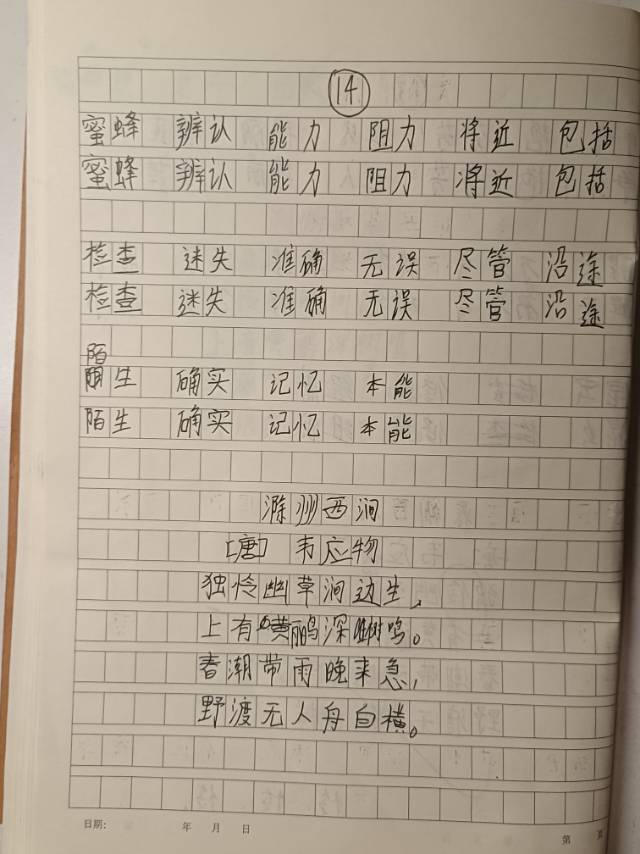 14
蜜蜂 辨认 能力 阻力 将近 包括
蜜蜂 辨认 能力 阻力 将近 包括
检查 迷失 准确 无误 尽管 沿途
检查 迷失 准确 无误 尽管 沿途
陌
生 确实 记忆 本能
陌生 确实 记忆 本能
滁州西涧
[唐] 韦应物
独怜幽草涧边生,
上有黄鹂深树鸣。
春潮带雨晚来急,
野渡无人舟自横。
日期: 年 月 日
第 页